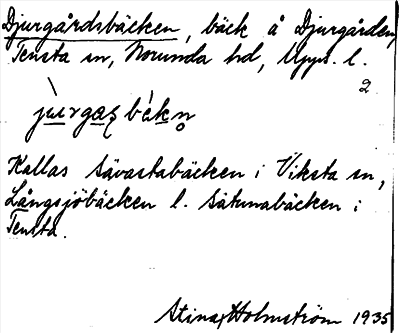 Djurgårdsbäcken, bäck å Djurgården,
Tensta sn, Norunda hd, Upps. l.
2
Kallas Sävastabäcken i Viksta sn,
Långsjöbäcken l. Sätunabäcken i
Tensta.
Stina Holmström 1935